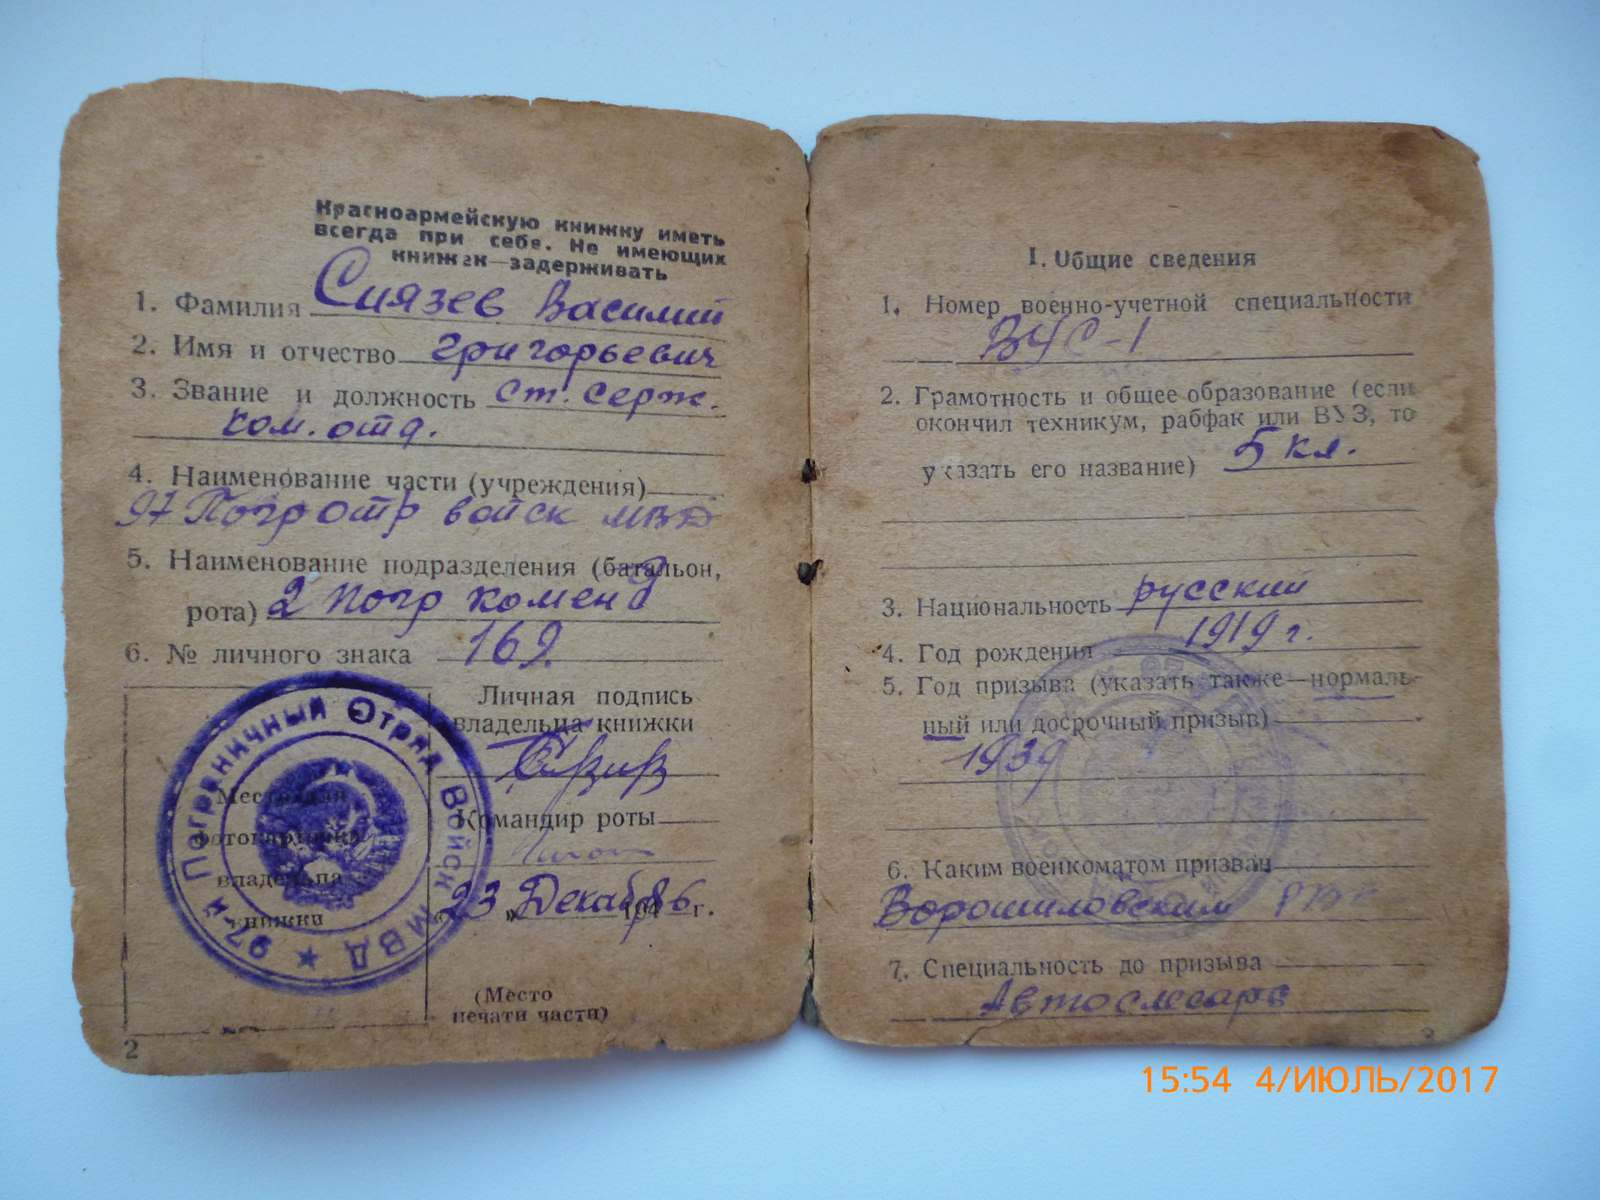 Красноармейскую книжку иметь
всегда при себе. Не имеющих
книжек—задерживать
1. Фамилия Сиязев Василий
2. Имя и отчество Григорьевич
3. Звание и должность ст. серж.
ком. отд.
4. Наименование части (учреждения)
97 Погр отр войск МВД
5. Наименование подразделения (батальон,
рота) 2 погр коменд
6. № личного знака 169.
Личная подпись
владельца книжки
Место для
фотокарточки
владельца
книжки
Командир роты
23 Декабр 1946 г.
(Место
печати части)
97й Пограничный Отряд Войск МВД
2
I. Общие сведения
1. Номер военно-учетной специальности
ВУС-1
2. Грамотность и общее образование (если
окончил техникум, рабфак или ВУЗ, то
указать его название) 5 кл.
3. Национальность русский
4. Год рождения 1919 г.
5. Год призыва (указать также—нормаль-
ный или досрочный призыв)
1939
6. Каким военкоматом призван
Ворошиловским РВК
7. Специальность до призыва
Автослесарь
3
15:54 4/ИЮЛЬ/2017